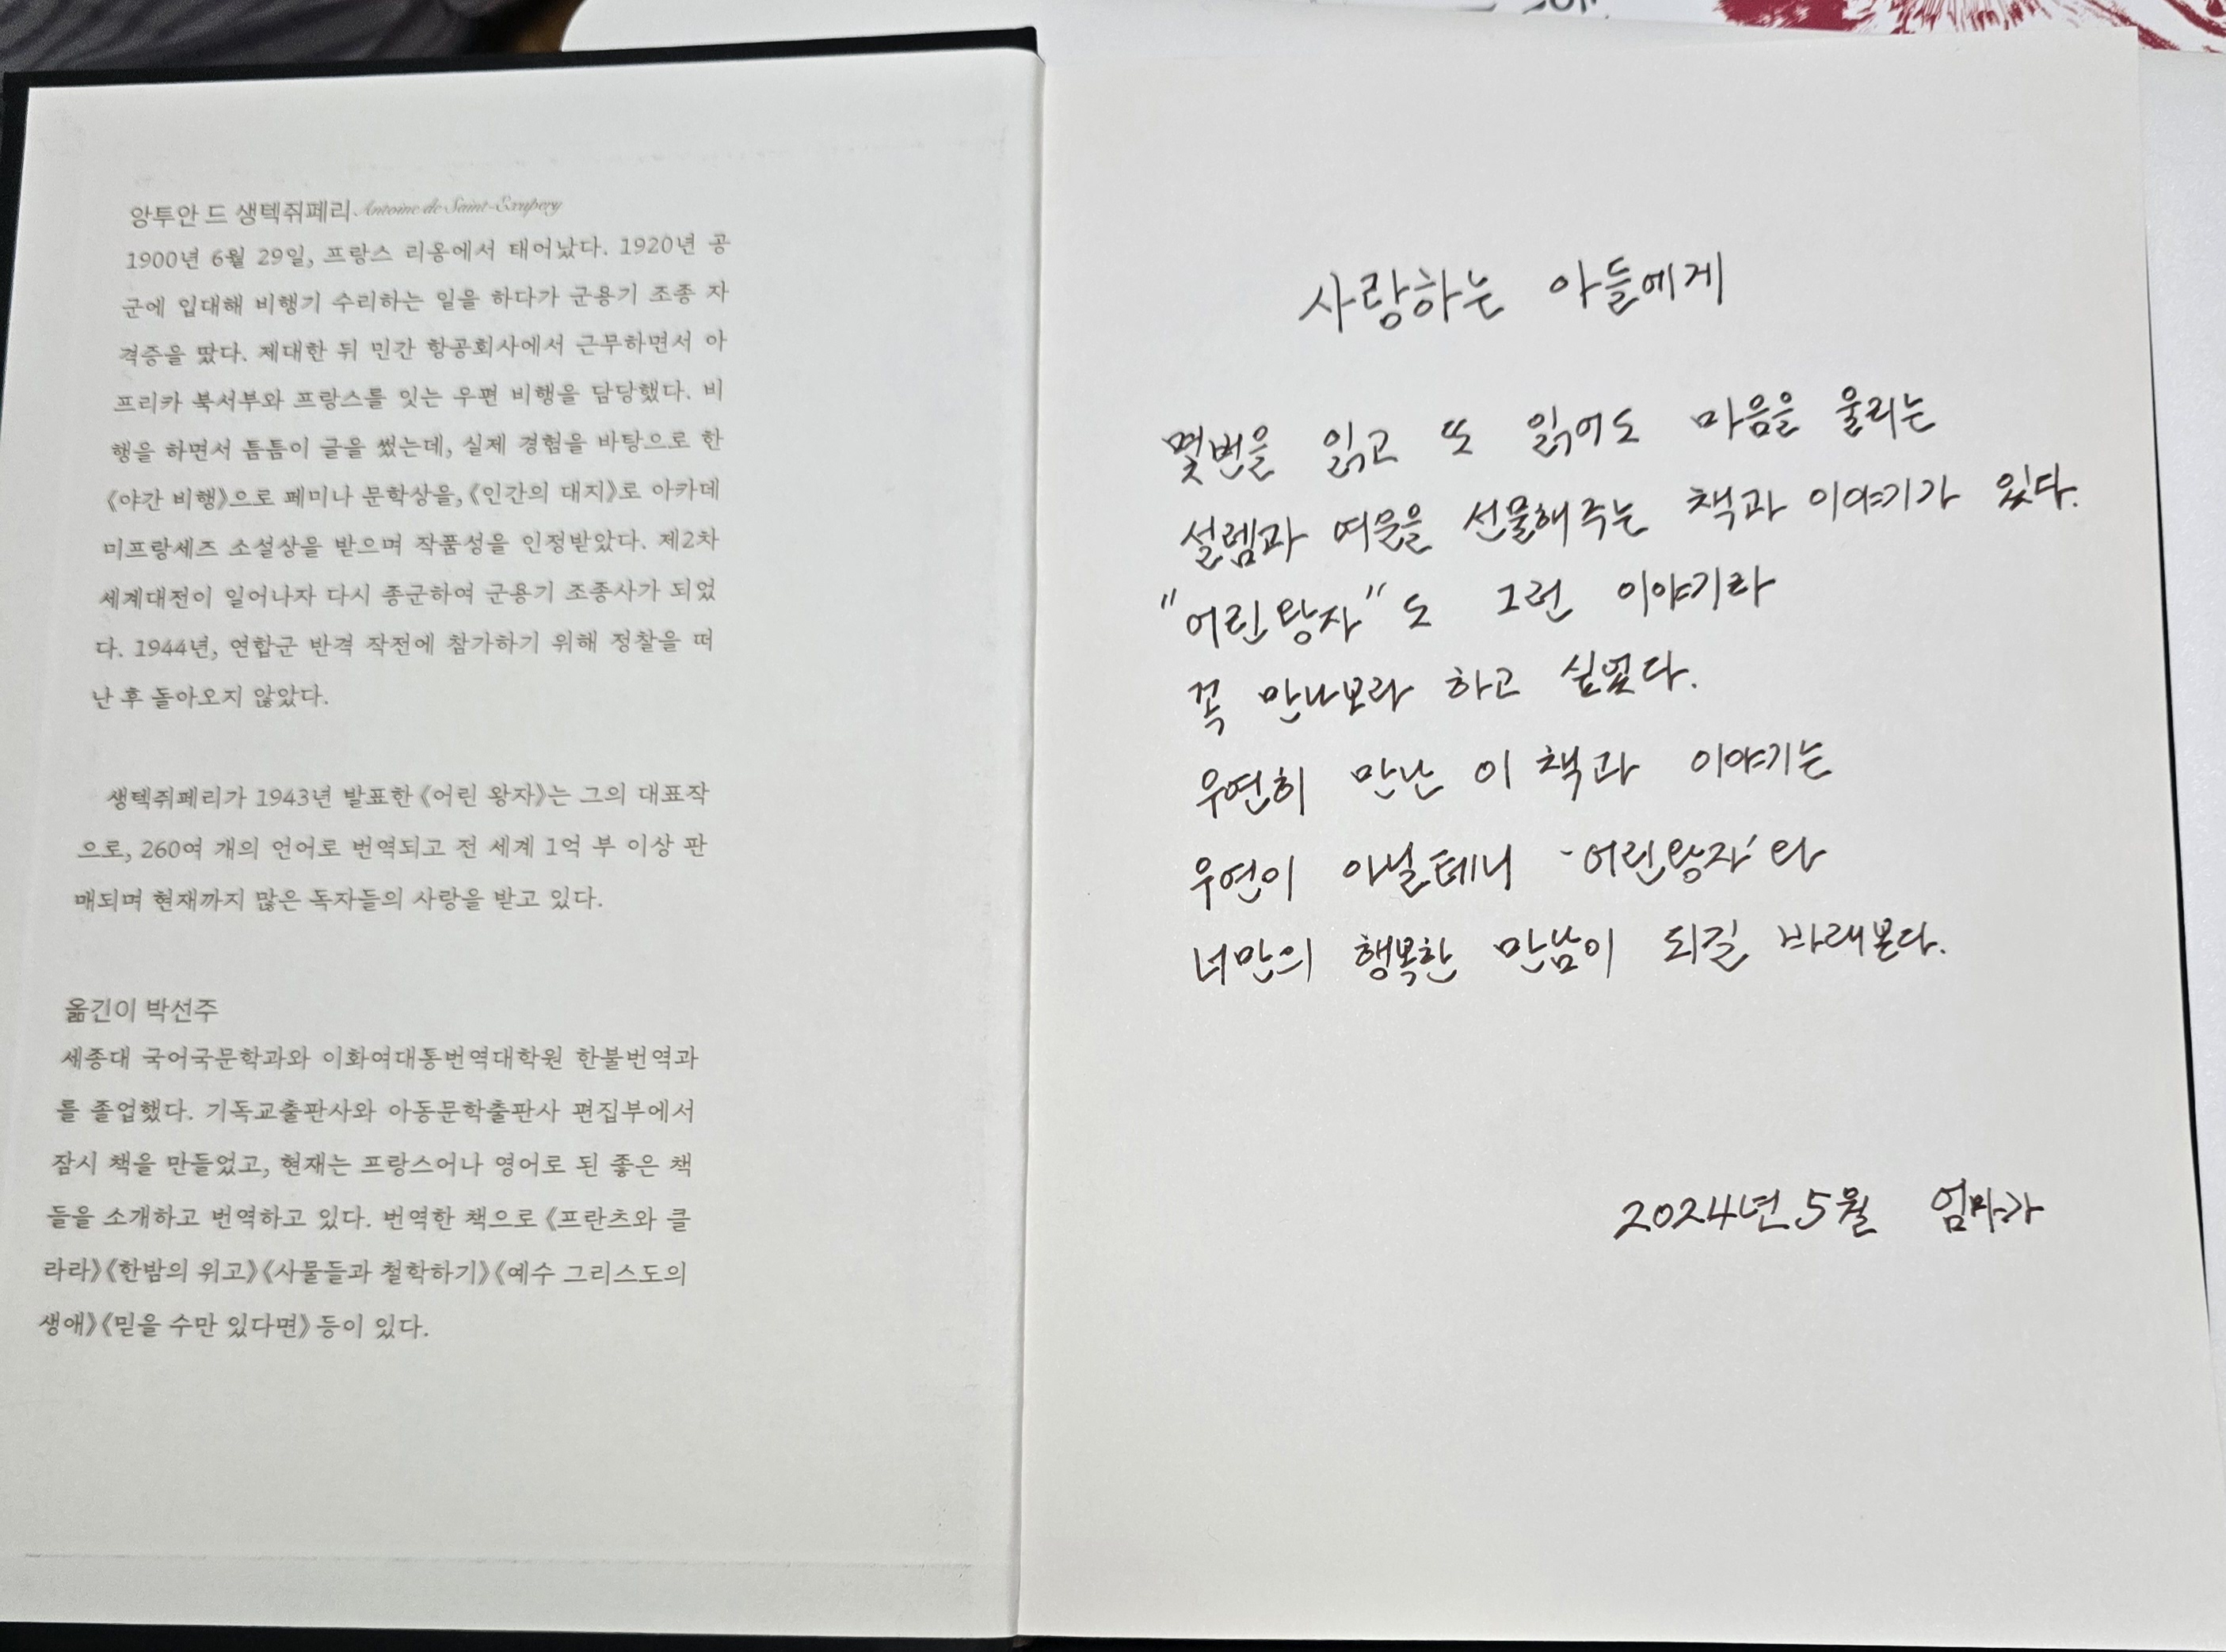 앙투안 드 생텍쥐페리 Antoine de Saint-Exupery
1900년 6월 29일, 프랑스 리옹에서 태어났다. 1920년 공
군에 입대해 비행기 수리하는 일을 하다가 군용기 조종 자
격증을 땄다. 제대한 뒤 민간 항공회사에서 근무하면서 아
프리카 북서부와 프랑스를 잇는 우편 비행을 담당했다. 비
행을 하면서 틈틈이 글을 썼는데, 실제 경험을 바탕으로 한
《야간 비행》으로 페미나 문학상을, 《인간의 대지》로 아카데
미프랑세즈 소설상을 받으며 작품성을 인정받았다. 제2차
세계대전이 일어나자 다시 종군하여 군용기 조종사가 되었
다. 1944년, 연합군 반격 작전에 참가하기 위해 정찰을 떠
난 후 돌아오지 않았다.
생텍쥐페리가 1943년 발표한 《어린 왕자》는 그의 대표작
으로, 260여 개의 언어로 번역되고 전 세계 1억 부 이상 판
매되며 현재까지 많은 독자들의 사랑을 받고 있다.
옮긴이 박선주
세종대 국어국문학과와 이화여대통번역대학원 한불번역과
를 졸업했다. 기독교출판사와 아동문학출판사 편집부에서
잠시 책을 만들었고, 현재는 프랑스어나 영어로 된 좋은 책
들을 소개하고 번역하고 있다. 번역한 책으로 《프란츠와 클
라라》《한밤의 위고》《사물들과 철학하기》《예수 그리스도의
생애》《믿을 수만 있다면》 등이 있다.
사랑하는 아들에게
몇번을 읽고 또 읽어도 마음을 울리는
설렘과 여운을 선물해주는 책과 이야기가 있다.
"어린왕자"도 그런 이야기라
꼭 만나보라 하고 싶었다.
우연히 만난 이 책과 이야기는
우연이 아닐테니 '어린왕자'와
너만의 행복한 만남이 되길 바래본다.
2024년 5월 엄마가